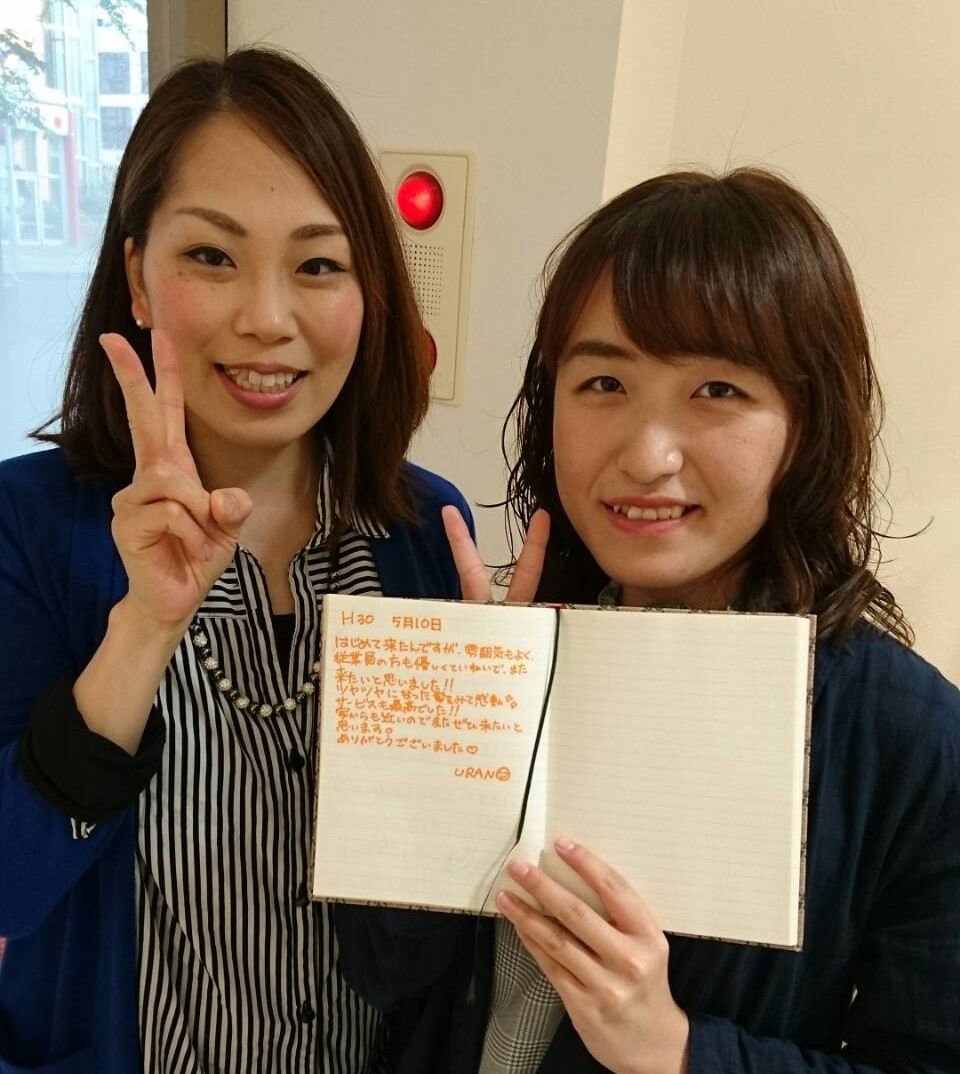 H30 5月10日
はじめて来たんですが、雰囲気もよく、
従業員の方も優しくていねいで、また
来たいと思いました!!
ツヤツヤになった髪をみて感動
サービスも最高でした!!
家からも近いのでまたぜひ来たいと
思います。
ありがとうございました♡
URAN